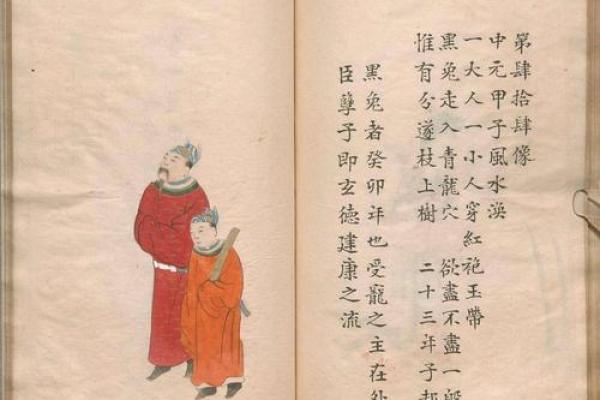 第肆拾肆像
中元甲子風水渙
一大人一小人穿紅袍玉帶
黑兔走入青龍穴 欲盡不盡一般
惟有分遂枝上樹 二十三年子
黑兔者癸卯年也受寵之主在外
臣孽子即玄德建康之流